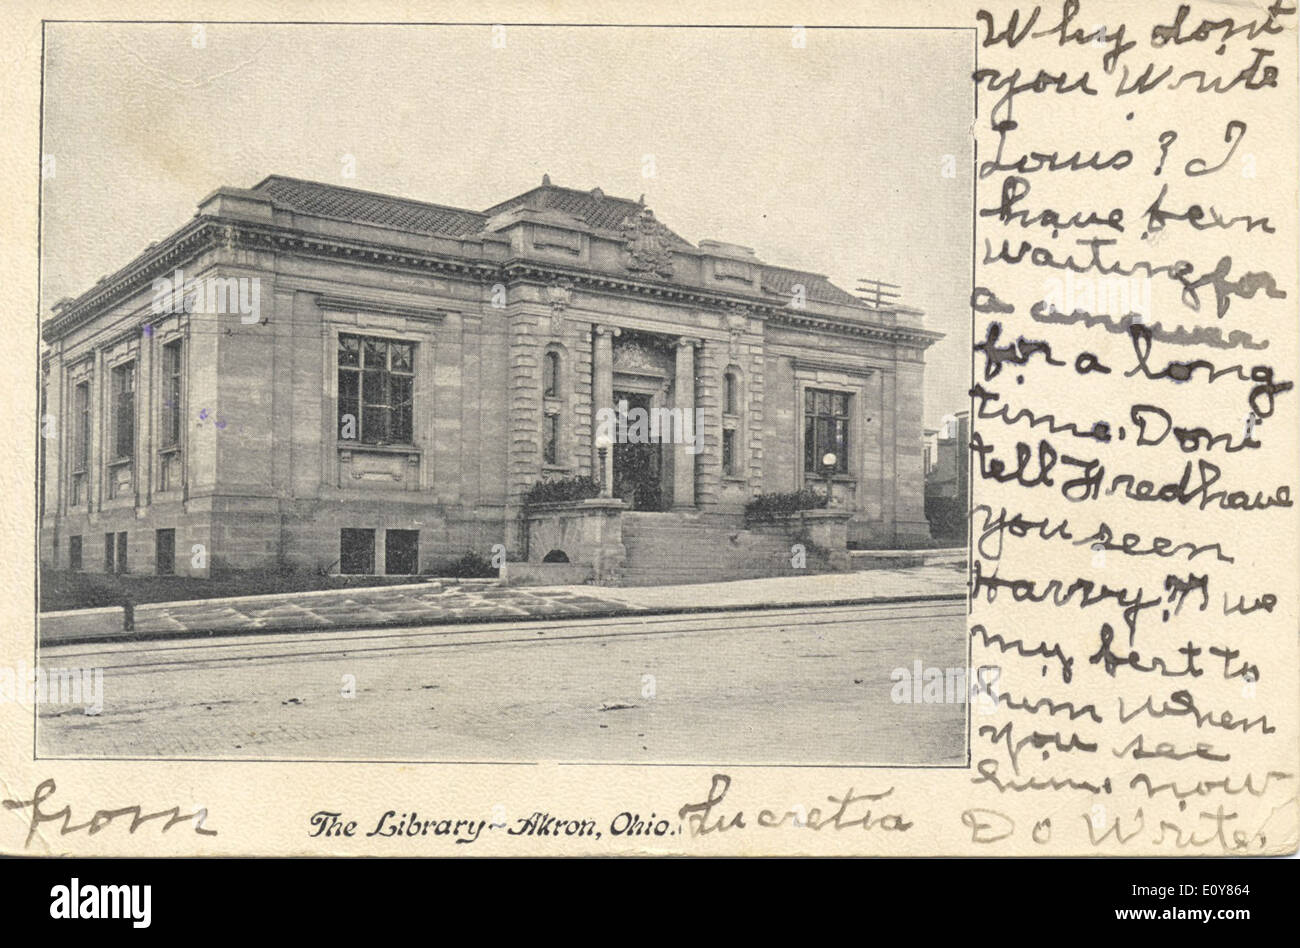 Why dont
you Write
Louis? I
have been
waiting for
a answer
for a long
time. Dont
tell Fred have
you seen
Harry? Give
my best to
him When
you see
him now
Do Write.
from
The Library~Akron, Ohio.
Lucretia
a
alamy stock photo
E0Y864
www.alamy.com